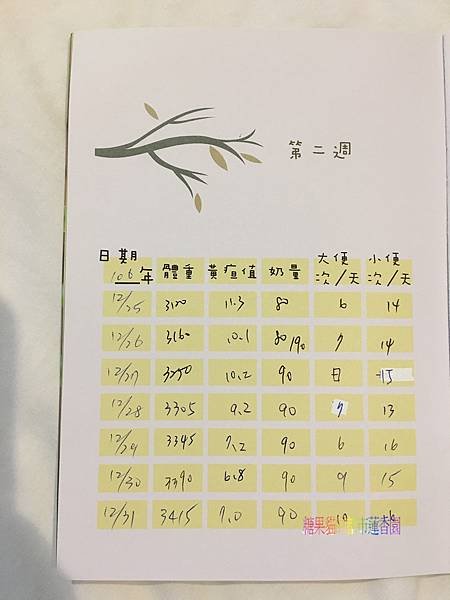 第二週
日期 106年 體重 黃疸值 奶量 大便次/天 小便次/天
12/25 3120 11.3 80 6 14
12/26 3160 10.1 80/90 7 14
12/27 3250 10.2 90 15
12/28 3305 9.2 90 7 13
12/29 3345 7.2 90 6 16
12/30 3390 6.8 90 9 15
12/31 3415 7.0 90 10
糖果貓 市蓮香園